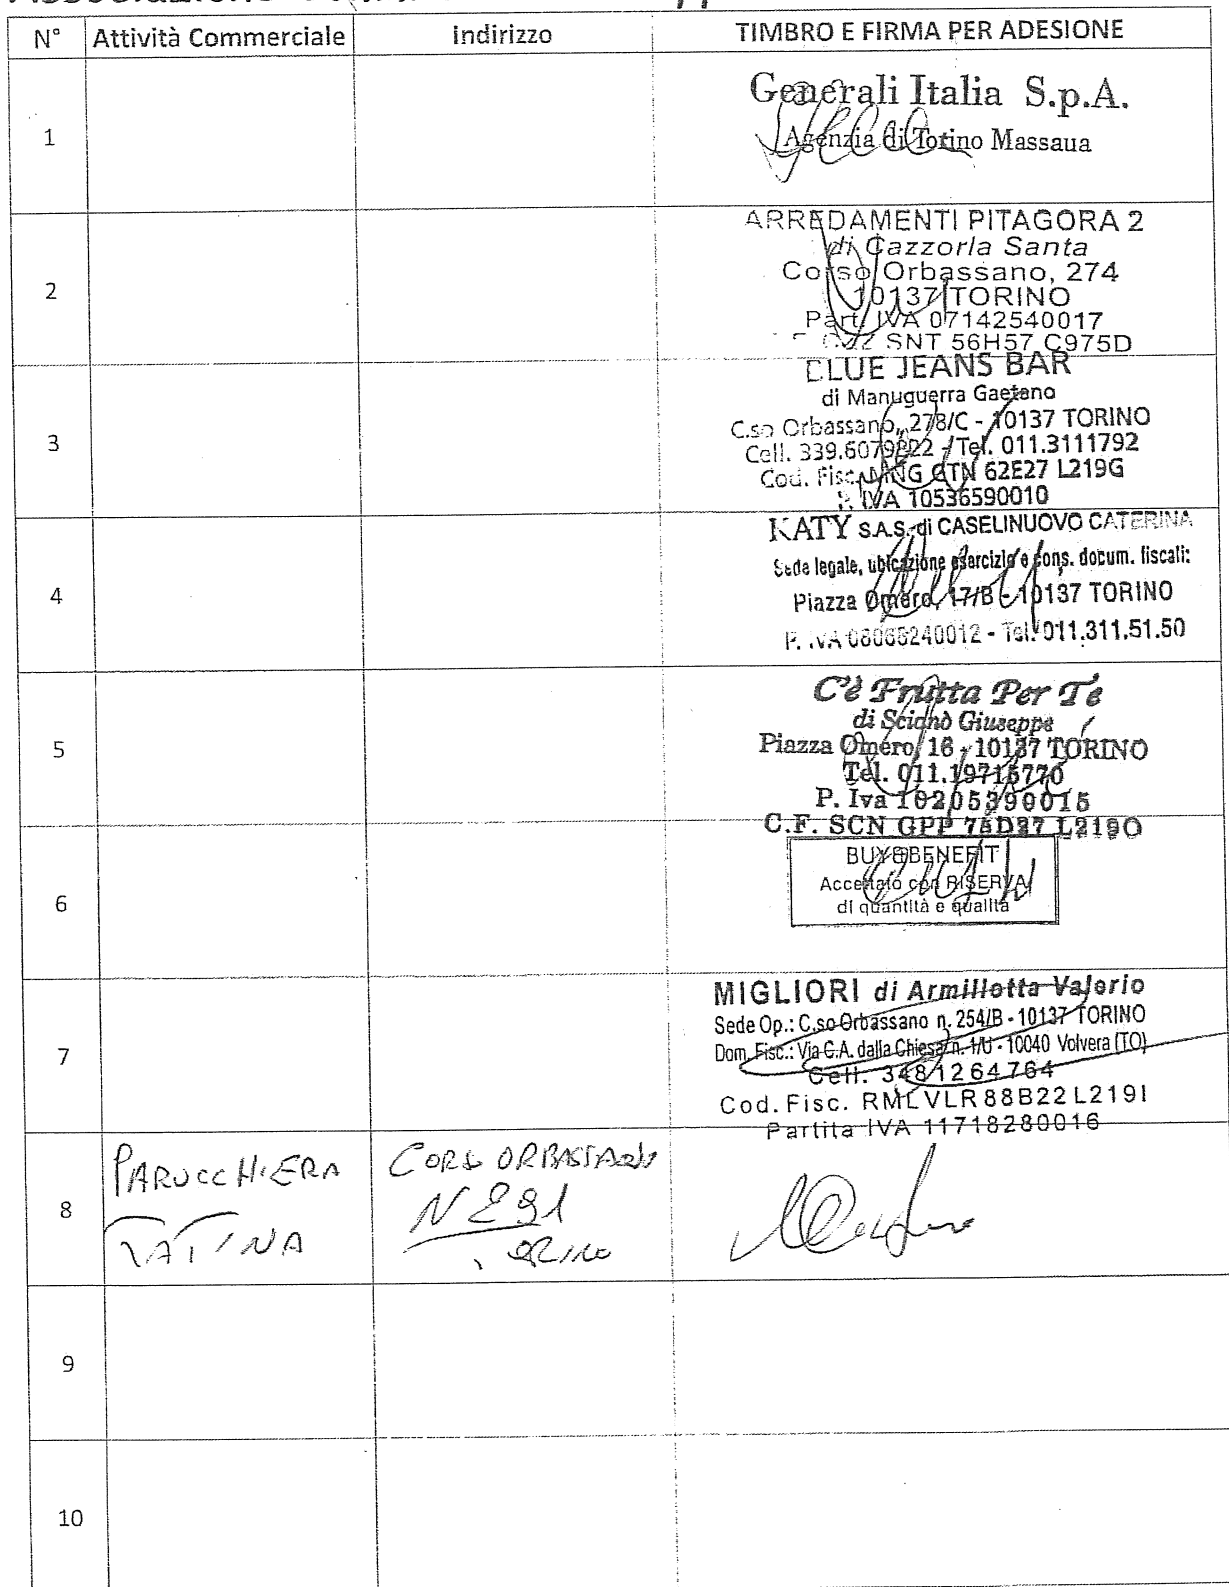 N° Attività Commerciale Indirizzo TIMBRO E FIRMA PER ADESIONE
1
Generali Italia S.p.A.
Agenzia di Torino Massaua
2
ARREDAMENTI PITAGORA 2
di Cazzorla Santa
Corso Orbassano, 274
10137 TORINO
Part. IVA 07142540017
SNT 56H57 C975D
3
BLUE JEANS BAR
di Manuguerra Gaetano
C.so Orbassano, 278/C - 10137 TORINO
Cell. 339.6079822 / Tel. 011.3111792
Cod. Fisc. MNG GTN 62E27 L219G
P. IVA 10536590010
4
KATY S.A.S. di CASELINUOVO CATERINA
Sede legale, ubicazione esercizio e cons. docum. fiscali:
Piazza Omero, 17/B - 10137 TORINO
P. IVA 08065240012 - Tel. 011.311.51.50
5
C'è Frutta Per Te
di Scianò Giuseppe
Piazza Omero, 16 - 10137 TORINO
Tel. 011.19715770
P. Iva 10205390015
C.F. SCN GPP 75D27 L219O
6
BUY&BENEFIT
Accettato con RISERVA
di quantità e qualità
7
MIGLIORI di Armillotta Valerio
Sede Op.: C.so Orbassano n. 254/B - 10137 TORINO
Dom. Fisc.: Via C.A. dalla Chiesa n. 1/U - 10040 Volvera (TO)
Cell. 3481264764
Cod. Fisc. RMLVLR88B22L219I
Partita IVA 11718280016
8
PARUCCHIERA
TATINA
CORSO ORBASSANO
N 291
TORINO
9
10